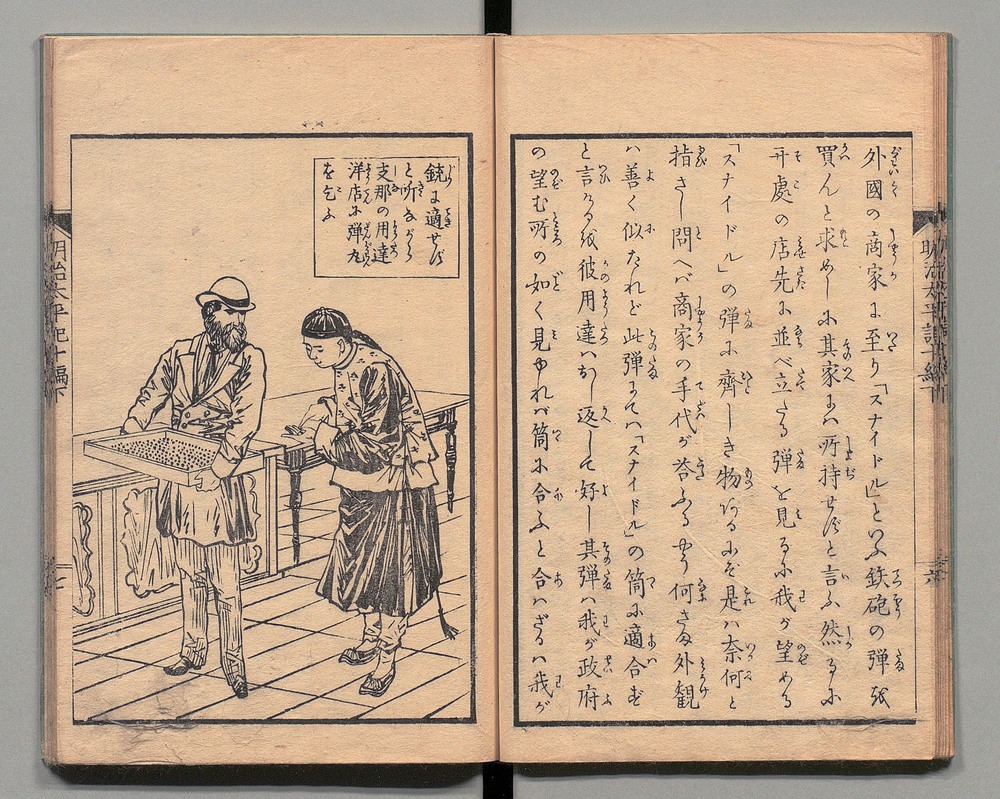 外國の商家に至り「スナイドル」といふ鉄砲の弾を
買んと求めしに其家にハ所持せずと言ふ然るに
开處の店先に並べ立たる弾を見るに我が望める
「スナイドル」の弾に齊しき物あるにぞ是ハ奈何と
指さし問へバ商家の手代が荅ふるやう何さま外観
ハ善く似たれど此弾にてハ「スナイドル」の筒に適合せず
と言けるを彼用達ハおし返して好し其弾ハ我が政府
の望む所の如く見ゆれバ筒に合ふと合ハざるハ我が
明治太平記十編下
六
銃に適せず
と听ながら
支那の用達
洋店に弾丸
を乞ふ
明治太平記十編下